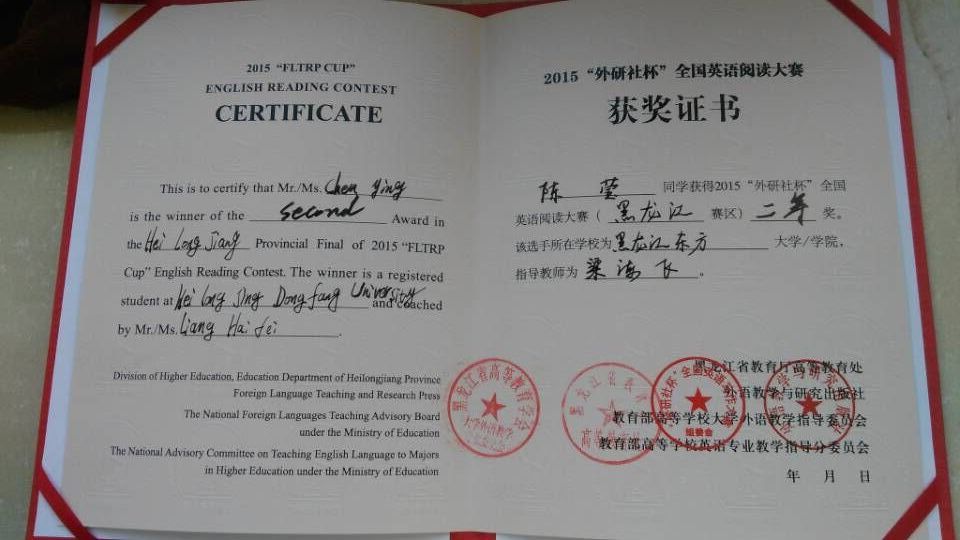 2015 “FLTRP CUP”
ENGLISH READING CONTEST
CERTIFICATE
This is to certify that Mr./Ms. Chen Ying
is the winner of the second Award in
the Hei Long Jiang Provincial Final of 2015 “FLTRP
Cup” English Reading Contest. The winner is a registered
student at Hei long Jing Dong fang University and coached
by Mr./Ms. Liang Hai fei.
Division of Higher Education, Education Department of Heilongjiang Province
Foreign Language Teaching and Research Press
The National Foreign Languages Teaching Advisory Board
under the Ministry of Education
The National Advisory Committee on Teaching English Language to Majors
in Higher Education under the Ministry of Education
2015 “外研社杯” 全国英语阅读大赛
获奖证书
陈莹 同学获得2015 “外研社杯” 全国
英语阅读大赛（黑龙江 赛区）二等 奖。
该选手所在学校为黑龙江东方 大学/学院，
指导教师为 梁海飞。
黑龙江省教育厅高等教育处
外语教学与研究出版社
教育部高等学校大学外语教学指导委员会
教育部高等学校英语专业教学指导分委员会
年 月 日
黑龙江省高等教育学会
大学外语教学
组委会